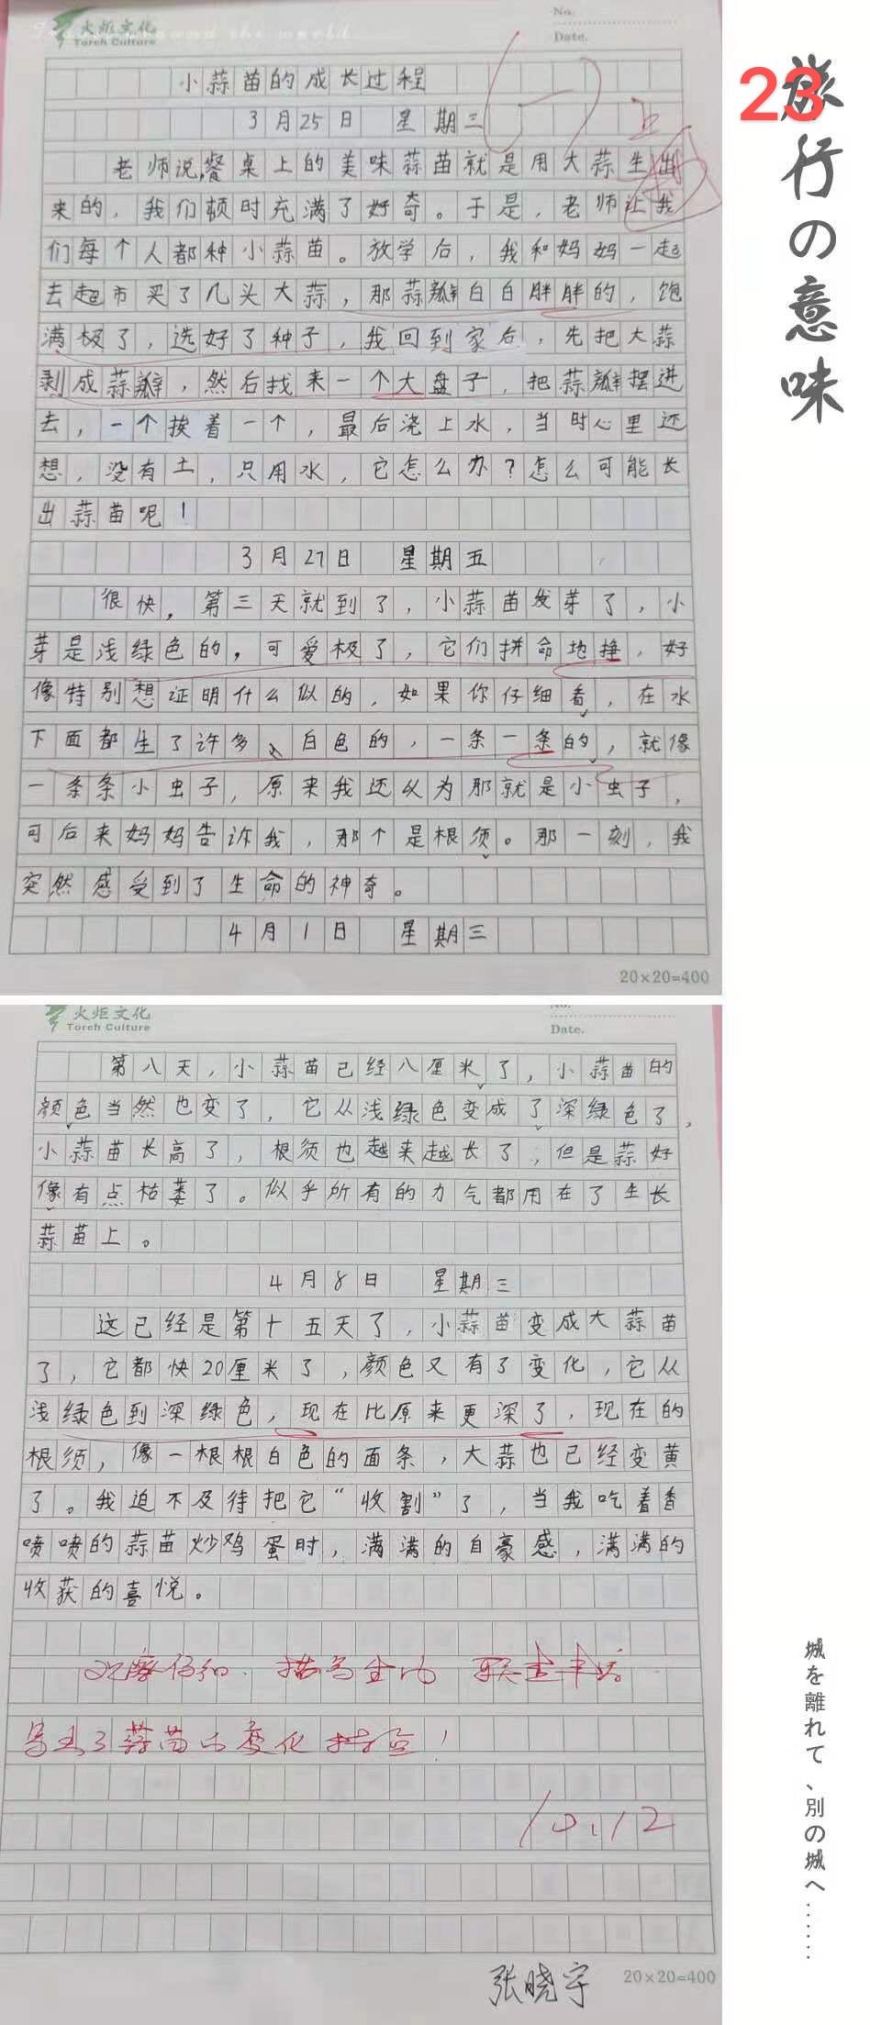 火炬文化
Torch Culture
No.
Date.
小蒜苗的成长过程
3月25日 星期三
老师说,餐桌上的美味蒜苗就是用大蒜生出
来的，我们顿时充满了好奇。于是，老师让我
们每个人都种小蒜苗。放学后，我和妈妈一起
去超市买了几头大蒜，那蒜瓣白白胖胖的，饱
满极了，选好了种子，我回到家后，先把大蒜
剥成蒜瓣，然后找来一个大盘子，把蒜瓣摆进
去，一个挨着一个，最后浇上水，当时心里还
想，没有土，只用水，它怎么办？怎么可能长
出蒜苗呢！
3月27日 星期五
很快，第三天就到了，小蒜苗发芽了，小
芽是浅绿色的，可爱极了，它们拼命地挣，好
像特别想证明什么似的，如果你仔细看，在水
下面都生了许多、白色的，一条一条的，就像
一条条小虫子，原来我还以为那就是小虫子，
可后来妈妈告诉我，那个是根须。那一刻，我
突然感受到了生命的神奇。
4月1日 星期三
20×20=400
火炬文化
Torch Culture
No.
Date.
第八天，小蒜苗已经八厘米了，小蒜苗的
颜色当然也变了，它从浅绿色变成了深绿色了，
小蒜苗长高了，根须也越来越长了，但是蒜好
像有点枯萎了。似乎所有的力气都用在了生长
蒜苗上。
4月8日 星期三
这已经是第十五天了，小蒜苗变成大蒜苗
了，它都快20厘米了，颜色又有了变化，它从
浅绿色到深绿色，现在比原来更深了，现在的
根须，像一根根白色的面条，大蒜也已经变黄
了。我迫不及待把它“收割”了，当我吃着香
喷喷的蒜苗炒鸡蛋时，满满的自豪感，满满的
收获的喜悦。
观察仔细、描写生动
写出了蒜苗的变化特点！
10.12
张晓宇
20×20=400
23
旅行の意味
城を離れて、別の城へ……